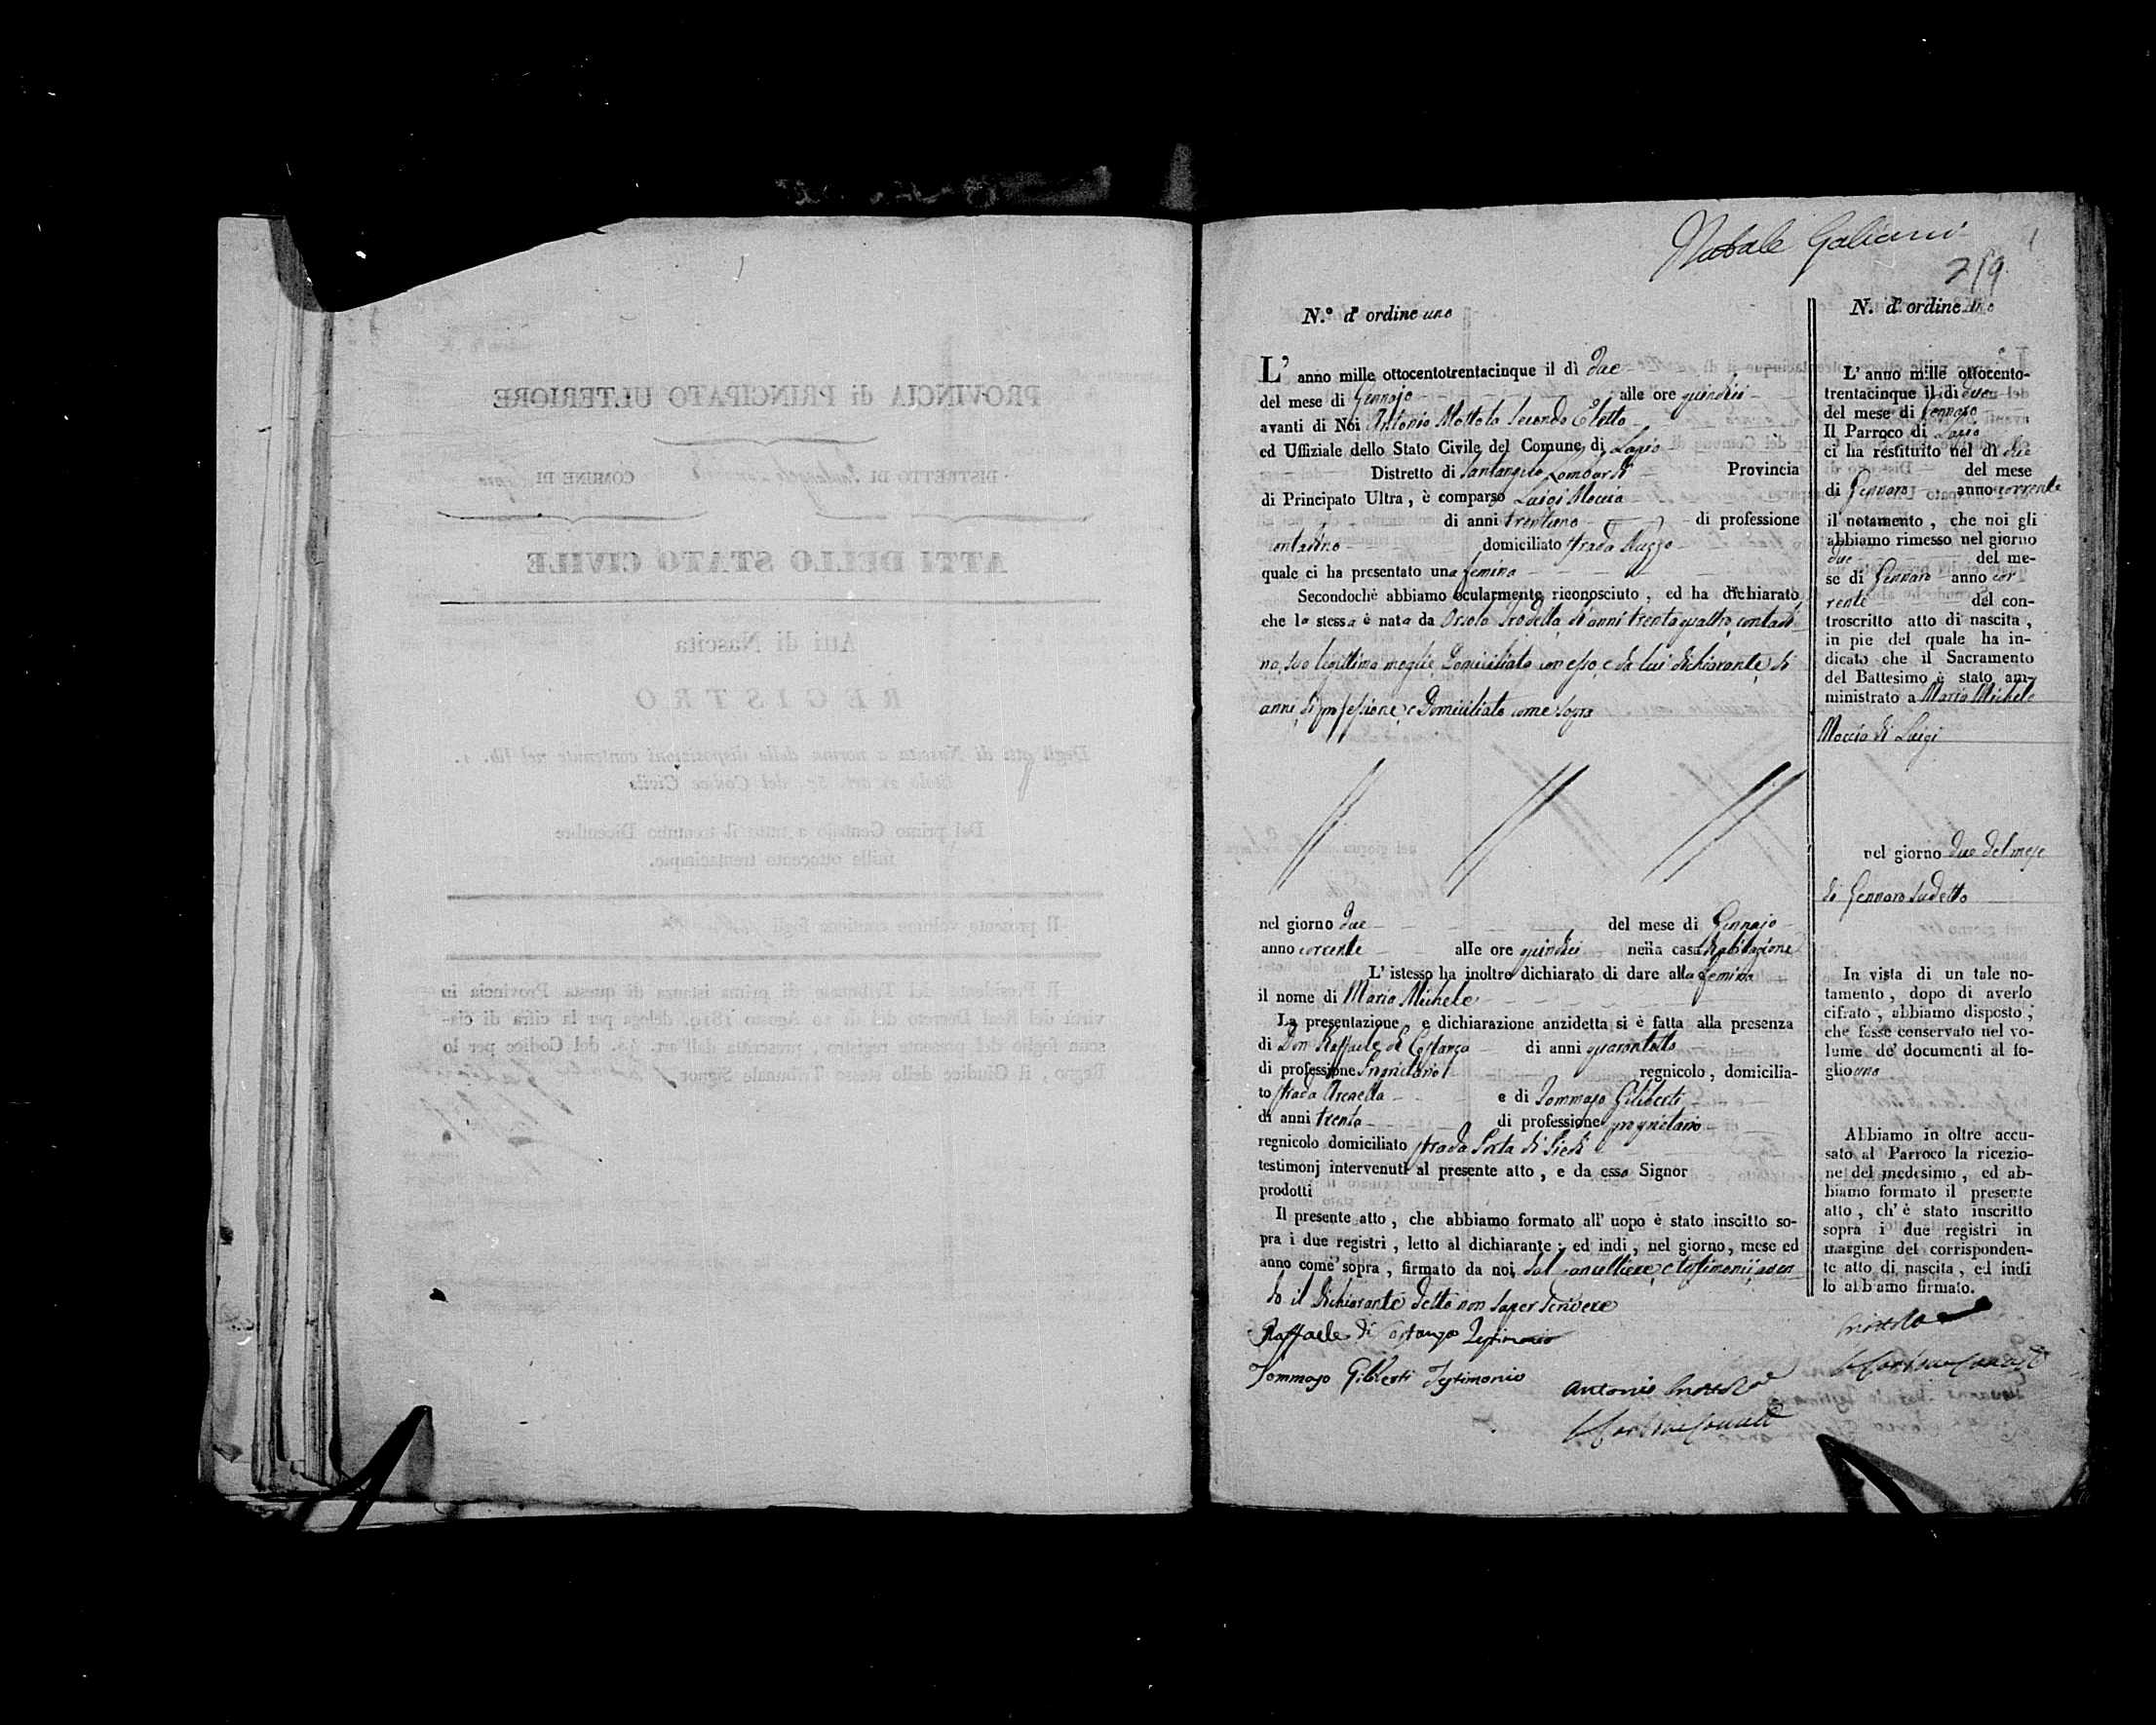 PROVINCIA di PRINCIPATO ULTERIORE
DISTRETTO DI COMUNE DI
ATTI DELLO STATO CIVILE
Atti di Nascita
REGISTRO
Degli atti di Nascita a norma delle disposizioni contenute nel lib. 1.
del Codice Civile
Del primo Gennajo a tutto il trentuno Dicembre
mille ottocento trentacinque.
Il presente volume contiene fogli
Il Presidente del Tribunale di prima istanza di questa Provincia in
virtù del Real Decreto del di 10 Agosto 1819. delega per la cifra di cia-
scun foglio del presente registro, prescritta dall'art. del Codice per lo
Regno, il Giudice dello stesso Tribunale Signor
Natale Galiani
1
N.° d' ordine uno
L' anno mille ottocentotrentacinque il dì due
del mese di Gennajo alle ore quindici
avanti di Noi Antonio Mottola Secondo Eletto
ed Uffiziale dello Stato Civile del Comune di
Distretto di Santangelo Lombardi Provincia
di Principato Ultra, è comparso Luigi Moccia
di anni trentuno di professione
contadino domiciliato strada
quale ci ha presentato una femina
Secondochè abbiamo ocularmente riconosciuto, ed ha dichiarato
che la stessa è nata da Orsola di anni trentaquattro, contadi-
na, sua legittima moglie Domiciliata con esso, e da lui dichiarante, di
anni, di professione, e Domiciliato come sopra
nel giorno due del mese di Gennajo
anno corrente alle ore quindici nella casa d'abitazione
L' istesso ha inoltre dichiarato di dare alla femina
il nome di Maria Michele
La presentazione, e dichiarazione anzidetta si è fatta alla presenza
di Don Raffaele di Costanzo di anni quarantotto
di professione Proprietario regnicolo, domicilia-
to strada Arenella e di Tommaso Giliberti
di anni trenta di professione proprietario
regnicolo domiciliato strada Porta di Piedi
testimonj intervenuti al presente atto, e da esso Signor
prodotti
Il presente atto, che abbiamo formato all' uopo è stato inscitto so-
pra i due registri, letto al dichiarante; ed indi, nel giorno, mese ed
anno come sopra, firmato da noi, dal Cancelliere, e testimonii, aven-
do il dichiarante detto non saper scrivere
Raffaele di Costanzo Testimonio
Tommaso Giliberti Testimonio
Antonio Mottola
N. d' ordine uno
L' anno mille ottocento-
trentacinque il di due
del mese di Gennaro
Il Parroco di
ci ha restituito nel dì due
del mese
di Gennaro anno corrente
il notamento, che noi gli
abbiamo rimesso nel giorno
due del me-
se di Gennaro anno cor-
rente del con-
troscritto atto di nascita,
in pie del quale ha in-
dicato che il Sacramento
del Battesimo è stato am-
ministrato a Maria Michele
Moccia di Luigi
nel giorno due del mese
di Gennaro sudetto
In vista di un tale no-
tamento, dopo di averlo
cifrato, abbiamo disposto,
che fosse conservato nel vo-
lume de' documenti al fo-
glio uno
Abbiamo in oltre accu-
sato al Parroco la ricezio-
ne del medesimo, ed ab-
biamo formato il presente
atto, ch' è stato inscritto
sopra i due registri in
margine del corrisponden-
te atto di nascita, ed indi
lo abbiamo firmato.
Mottola